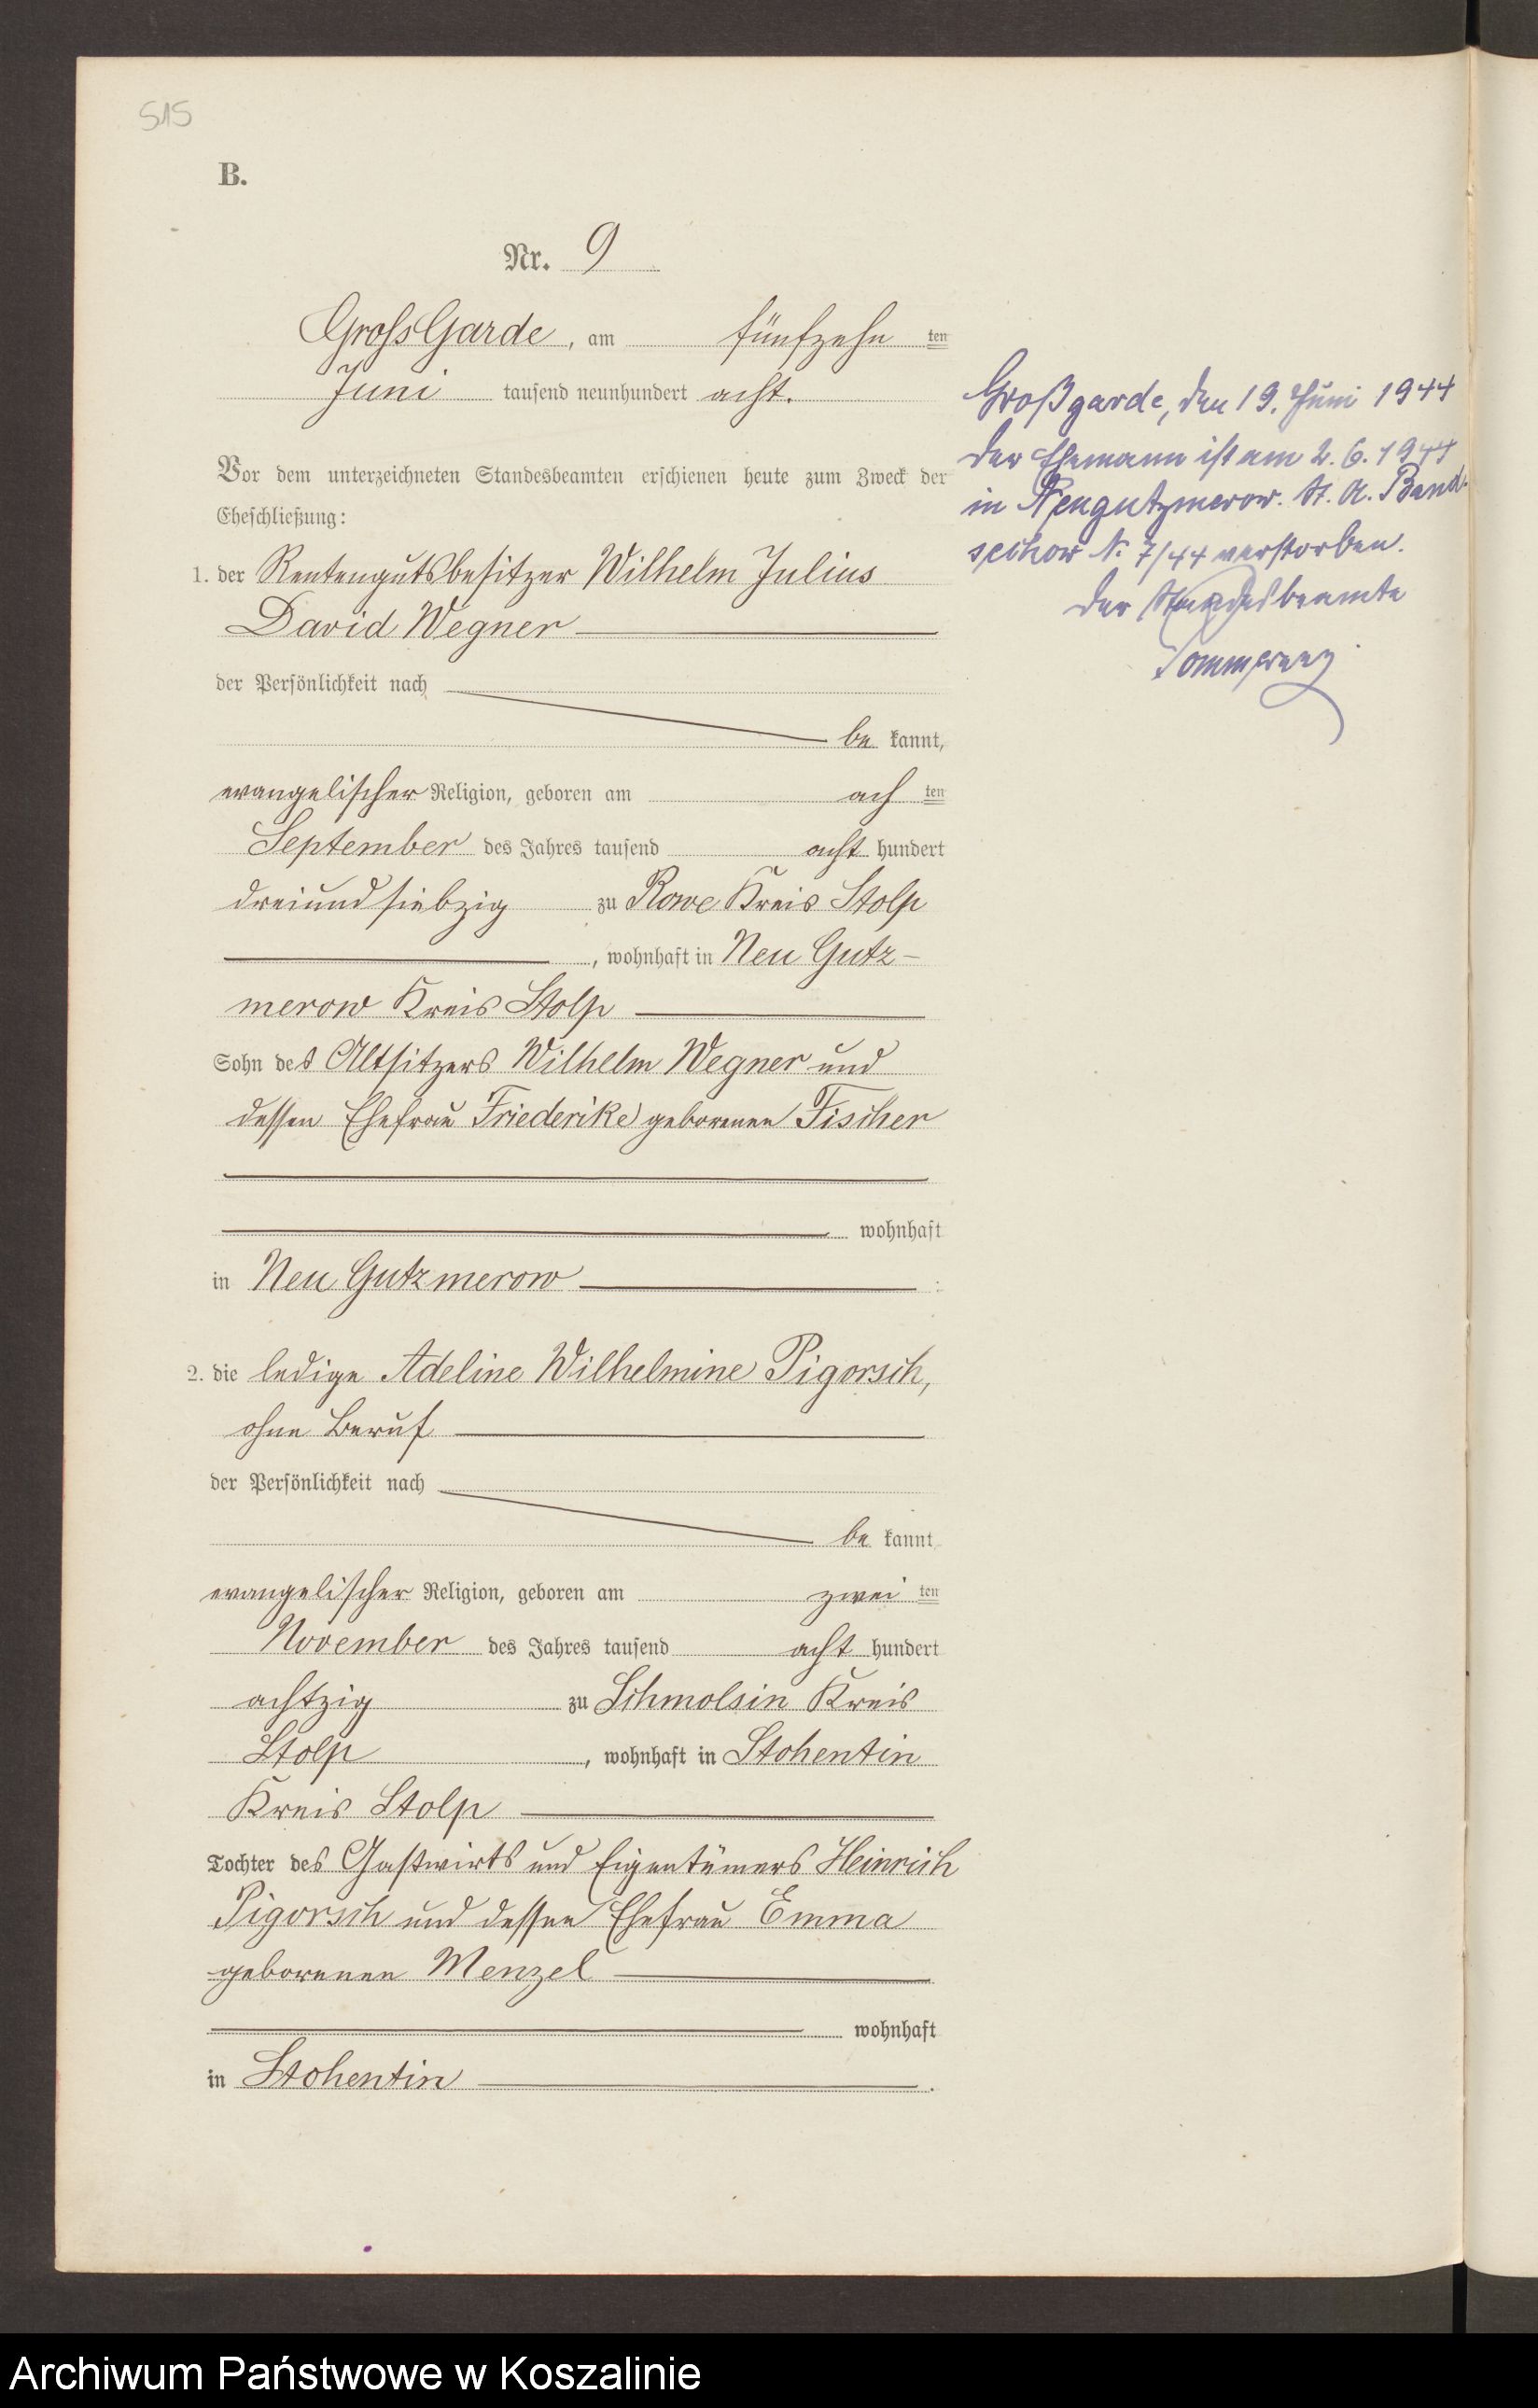 515
B.
Nr. 9
Gross Garde, am fünfzehn ten
Juni tausend neunhundert acht.
Vor dem unterzeichneten Standesbeamten erschienen heute zum Zweck der
Eheschließung:
1. der Rentengutsbesitzer Wilhelm Julius
David Wegner
der Persönlichkeit nach
be kannt,
evangelischer Religion, geboren am ach ten
September des Jahres tausend acht hundert
dreiundsiebzig zu Rowe Kreis Stolp
, wohnhaft in Neu Gutz-
merow Kreis Stolp
Sohn des Altsitzers Wilhelm Wegner und
dessen Ehefrau Friederike geborenen Fischer
wohnhaft
in Neu Gutzmerow :
2. die ledige Adeline Wilhelmine Pigorsch,
ohne Beruf
der Persönlichkeit nach
be kannt
evangelischer Religion, geboren am zwei ten
November des Jahres tausend acht hundert
achtzig zu Schmolsin Kreis
Stolp, wohnhaft in Stohentin
Kreis Stolp
Tochter des Gastwirts und Eigentümers Heinrich
Pigorsch und dessen Ehefrau Emma
geborenen Menzel
wohnhaft
in Stohentin .
Großgarde, den 19. Juni 1944
Der Ehemann ist am 2. 6. 1944
in Neugutzmerow. St. A. Band-
sechow N. 7/44 verstorben.
Der Standesbeamte
Archiwum Państwowe w Koszalinie